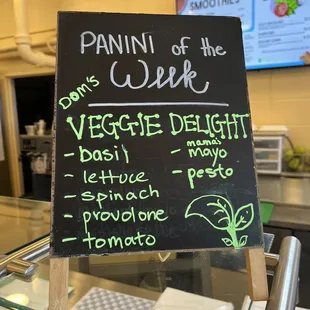 SMOOTHIES
PANINI of the
Week
DOM'S
VEGGIE DELIGHT
- basil
- lettuce
- spinach
- provolone
- tomato
- mama's mayo
- pesto